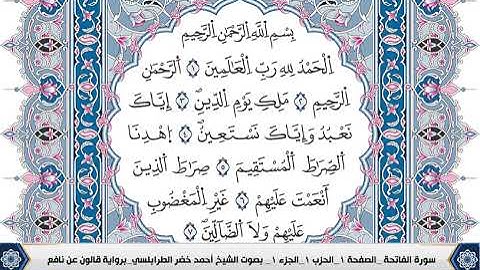 بِسْمِ اللَّهِ الرَّحْمَٰنِ الرَّحِيمِ
الْحَمْدُ لِلهِ رَبِّ الْعَالَمِينَ ١ الرَّحْمَٰنِ
الرَّحِيمِ ٢ مَلِكِ يَوْمِ الدِّينِ ٣ إِيَّاكَ
نَعْبُدُ وَإِيَّاكَ نَسْتَعِينُ ٤ اهْدِنَا
الصِّرَاطَ الْمُسْتَقِيمَ ٥ صِرَاطَ الَّذِينَ
أَنْعَمْتَ عَلَيْهِمْ ٦ غَيْرِ الْمَغْضُوبِ
عَلَيْهِمْ وَلَا الضَّالِّينَ ٧
سورة الفاتحة _الصفحة ١_الحزب ١_الجزء ١_ بصوت الشيخ أحمد خضر الطرابلسي_برواية قالون عن نافع